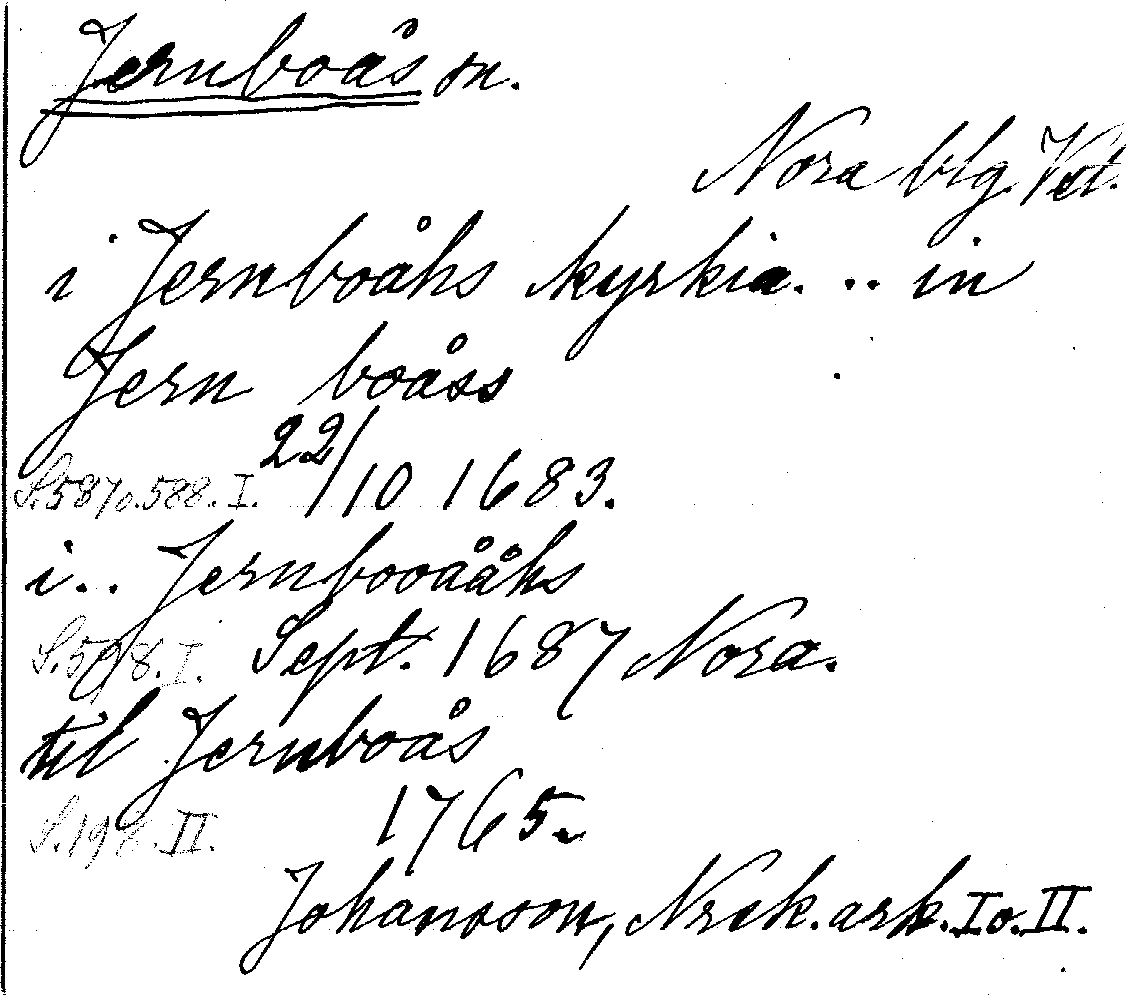 Jernboås sn.
Nora blg. Vstl.
i Jernboåhs kyrkia. .. in
Jern boåss
S.587o.588.I. 22/10 1683.
i.. Jernbooååhs
S.598.I. Sept. 1687 Nora.
til Jernboås
S.198.II. 1765.
Johansson, Nrck. ark. I o. II.